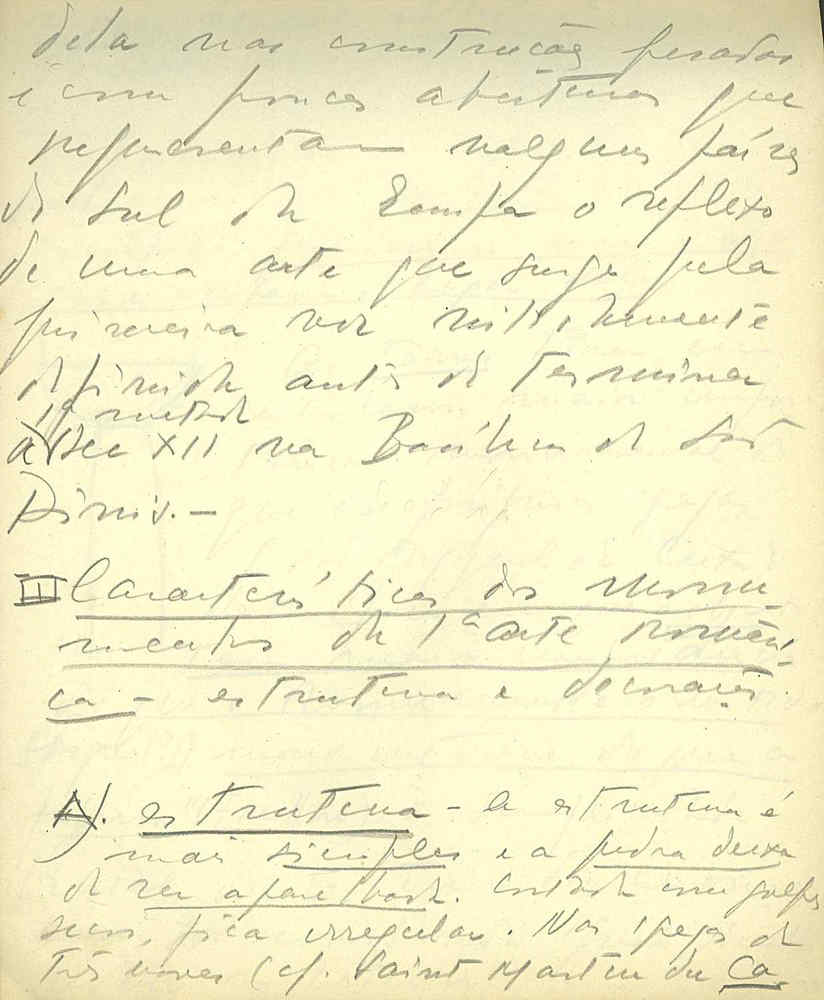 dela nas construções pesadas
e com poucas aberturas que
representam nalguns países
do Sul da Europa o reflexo
de uma arte que surge pela
primeira vez nitidamente
definida antes de terminar
a 1ª metade
do Sec XII na Basílica de Saint
Dinis. —
II Características dos monu-
mentos da 1ª arte românı-
ca - estrutura e decoração.
A). estrutura - a estrutura é
mais simples e a pedra deixa
de ser aparelhada. Cortada com golpes
secos, fica irregular. Nas igrejas de
três naves (cf. Saint Martin du Ca